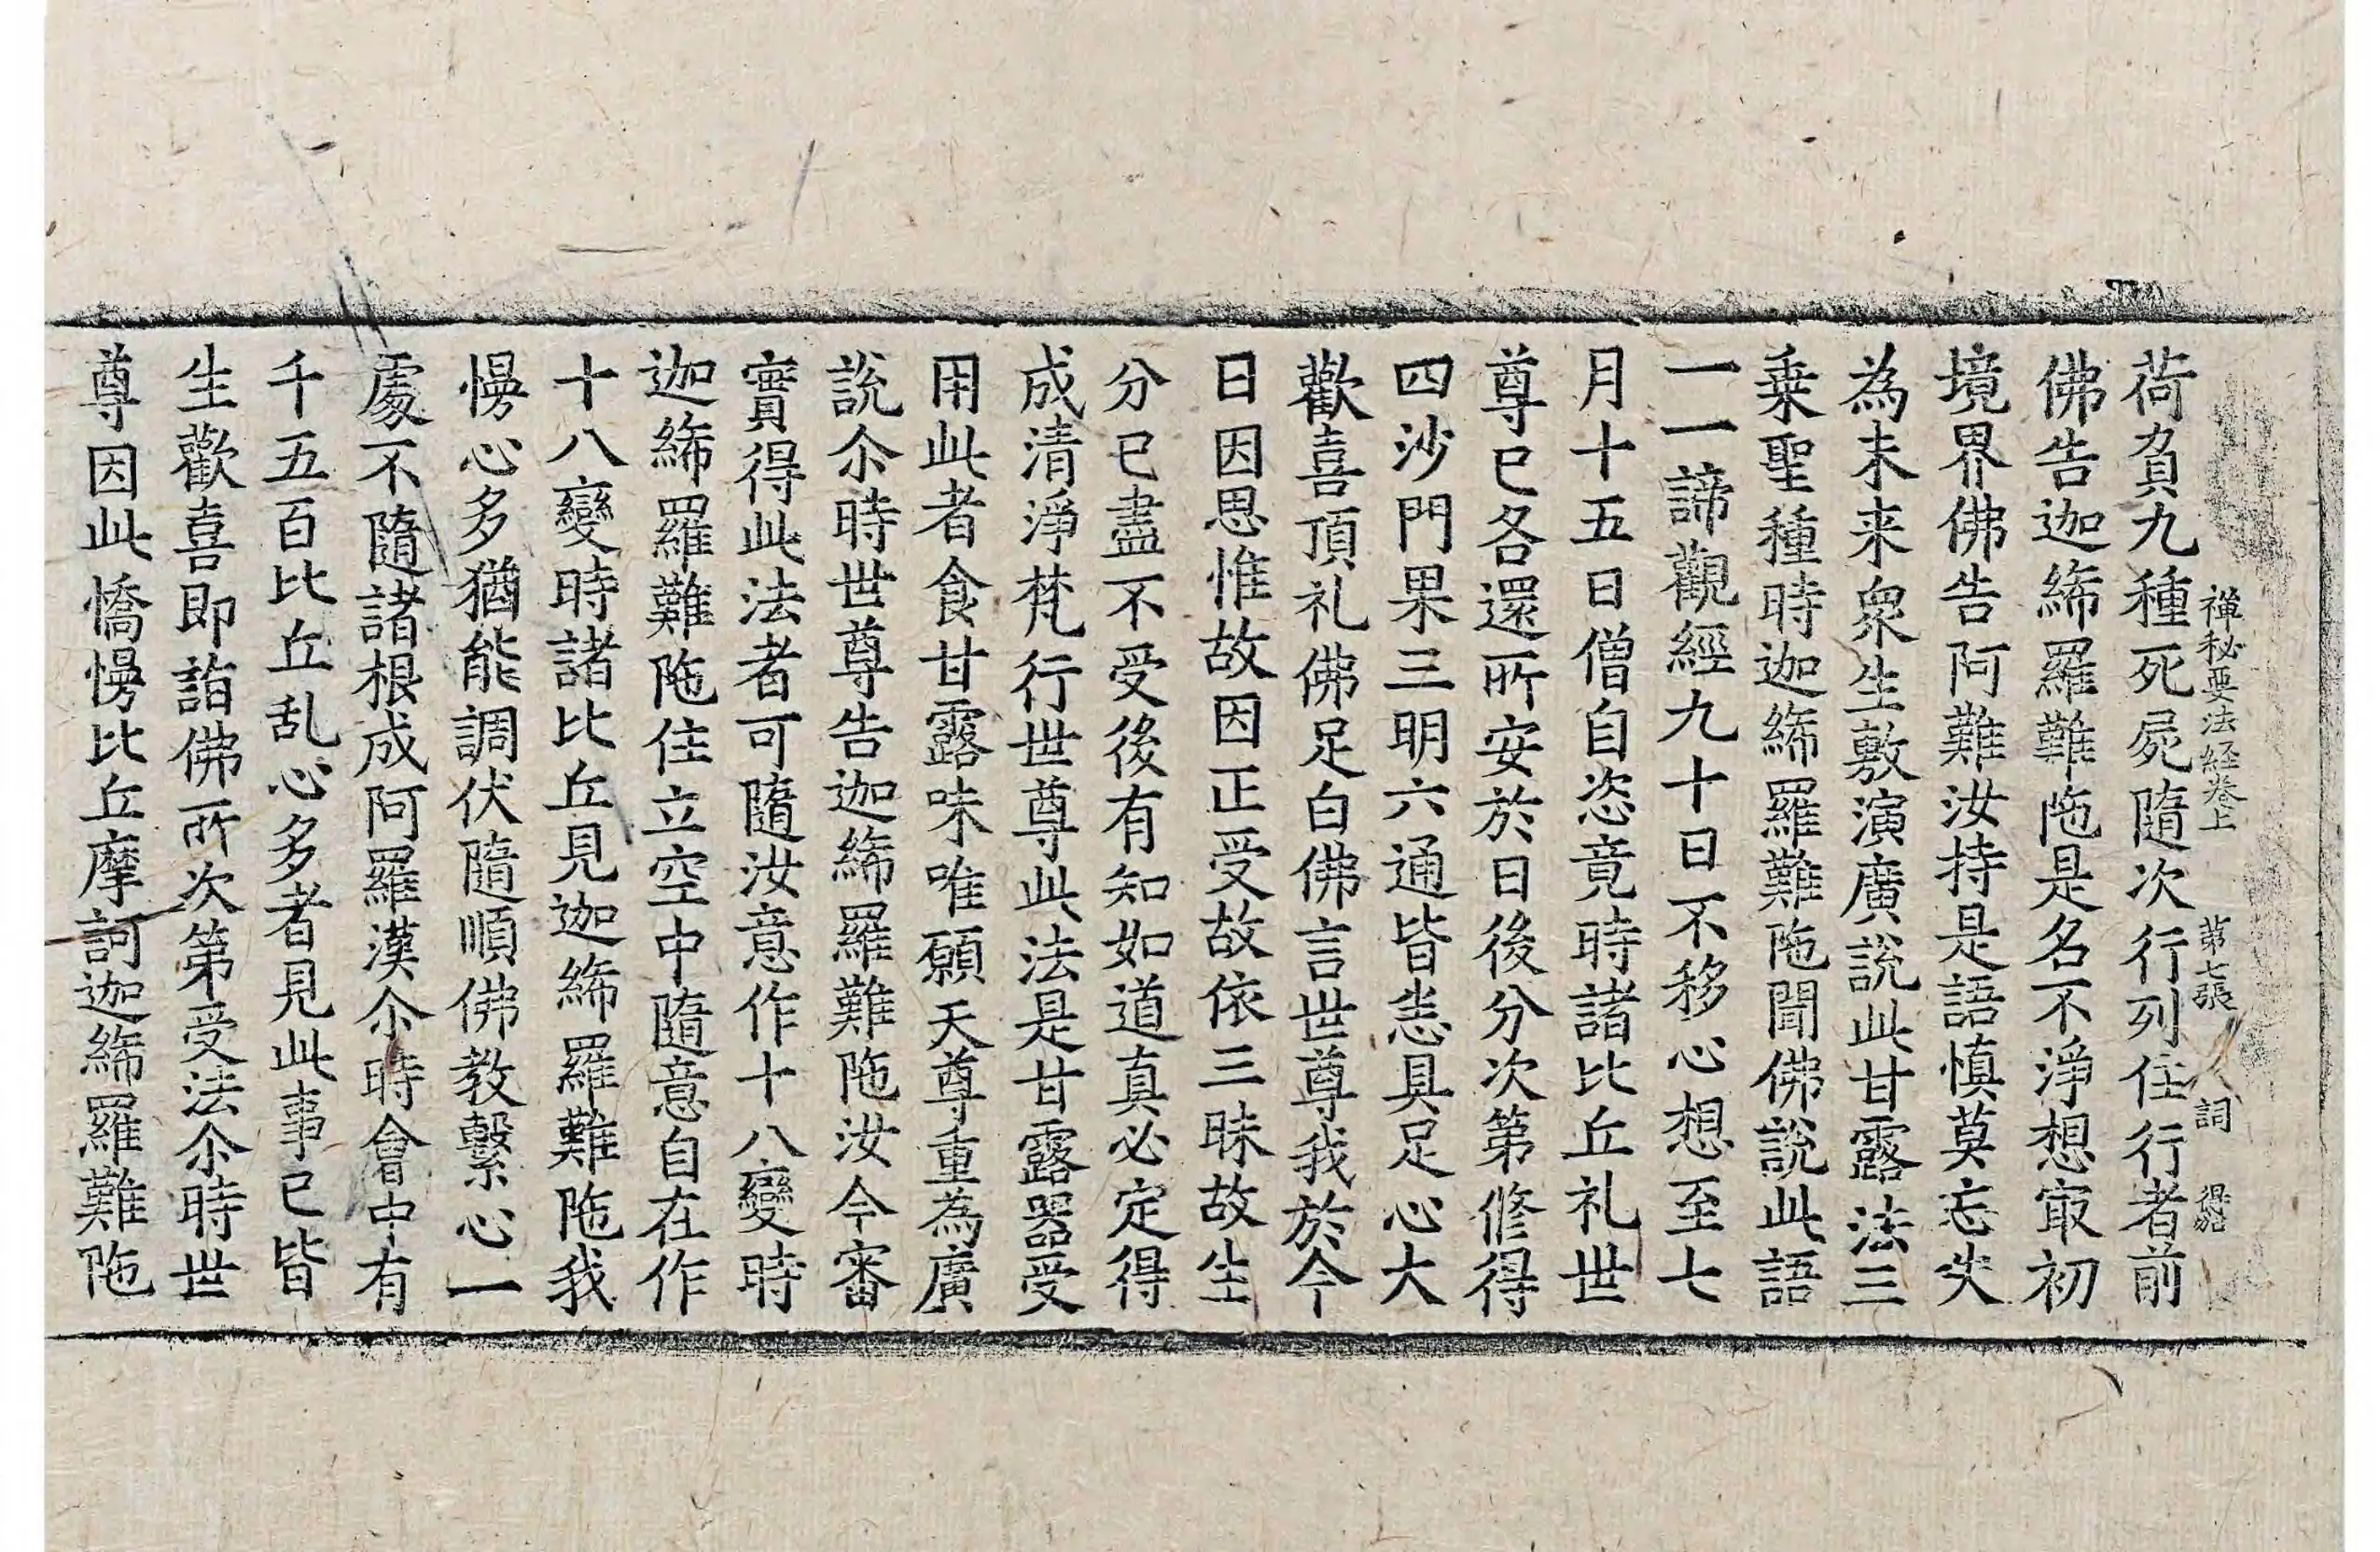 禪秘要法経卷上 苐七張 詞
荷負九種死屍隨次行列住行者前
佛告迦絺羅難陁是名不淨想㝡初
境界佛告阿難汝持是語慎莫忘失
為未来衆生敷演廣說此甘露法三
乗聖種時迦絺羅難陁聞佛說此語
一一諦觀經九十日不移心想至七
月十五日僧自恣竟時諸比丘礼世
尊已各還所安於日後分次第修得
四沙門果三明六通皆悉具足心大
歡喜頂礼佛足白佛言世尊我於今
日因思惟故因正受故依三昧故生
分已盡不受後有知如道真必定得
成清淨梵行世尊此法是甘露器受
用此者食甘露味唯願天尊重為廣
說尒時世尊告迦絺羅難陁汝今審
實得此法者可隨汝意作十八變時
迦絺羅難陁住立空中隨意自在作
十八變時諸比丘見迦絺羅難陁我
慢心多猶能調伏隨順佛教繫心一
處不隨諸根成阿羅漢尒時會中有
千五百比丘乱心多者見此事已皆
生歡喜即詣佛所次第受法尒時世
尊因此憍慢比丘摩訶迦絺羅難陁